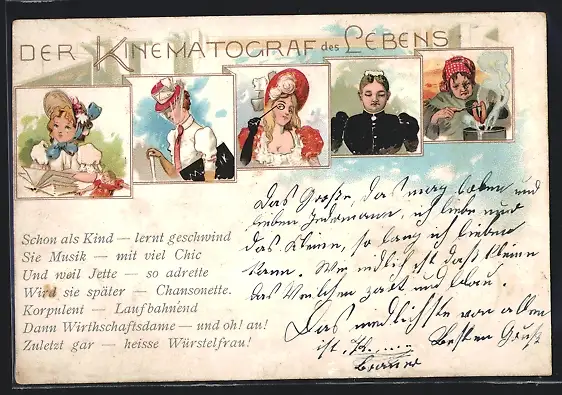 DER KINEMATOGRAF des LEBENS
Schon als Kind — lernt geschwind
Sie Musik — mit viel Chic
Und weil Jette — so adrette
Wird sie später — Chansonette.
Korpulent — Laufbahnend
Dann Wirthschaftsdame — und oh! au!
Zuletzt gar — heisse Würstelfrau!
Das Große, das mag loben und
lieben Jedermann, ich liebe nur
das Kleine, so lang ich lieben
kann. Wie niedlich ist das kleine
das Veilchen zart und blau.
Das niedlichste von allen
ist
Besten Gruß